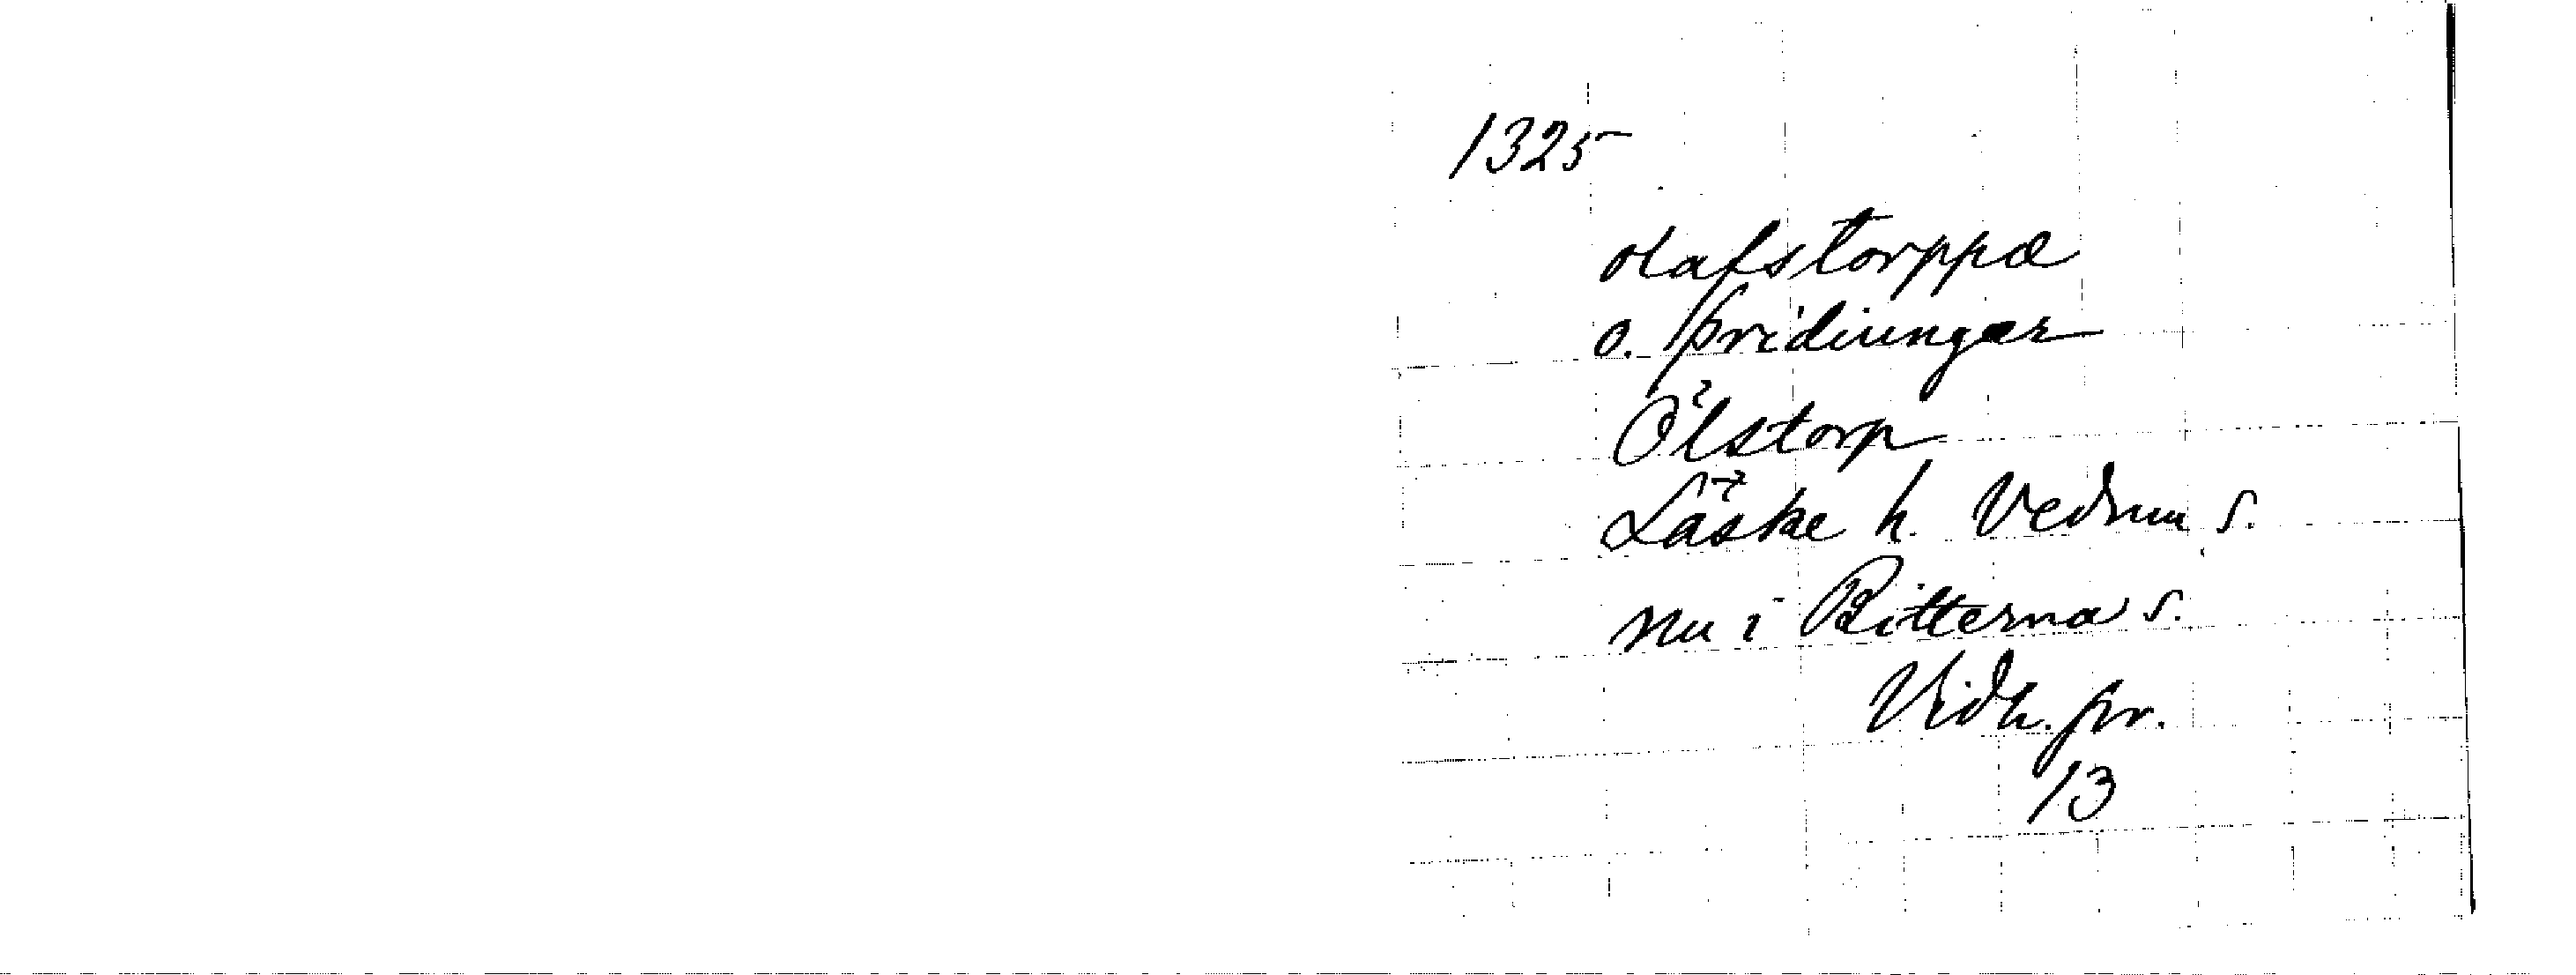 1325
olafstorppæ
o. þridiungær
Ölstorp
Läske h. Vedum s.
nu i Bitterna s.
Vidh. pr.
13